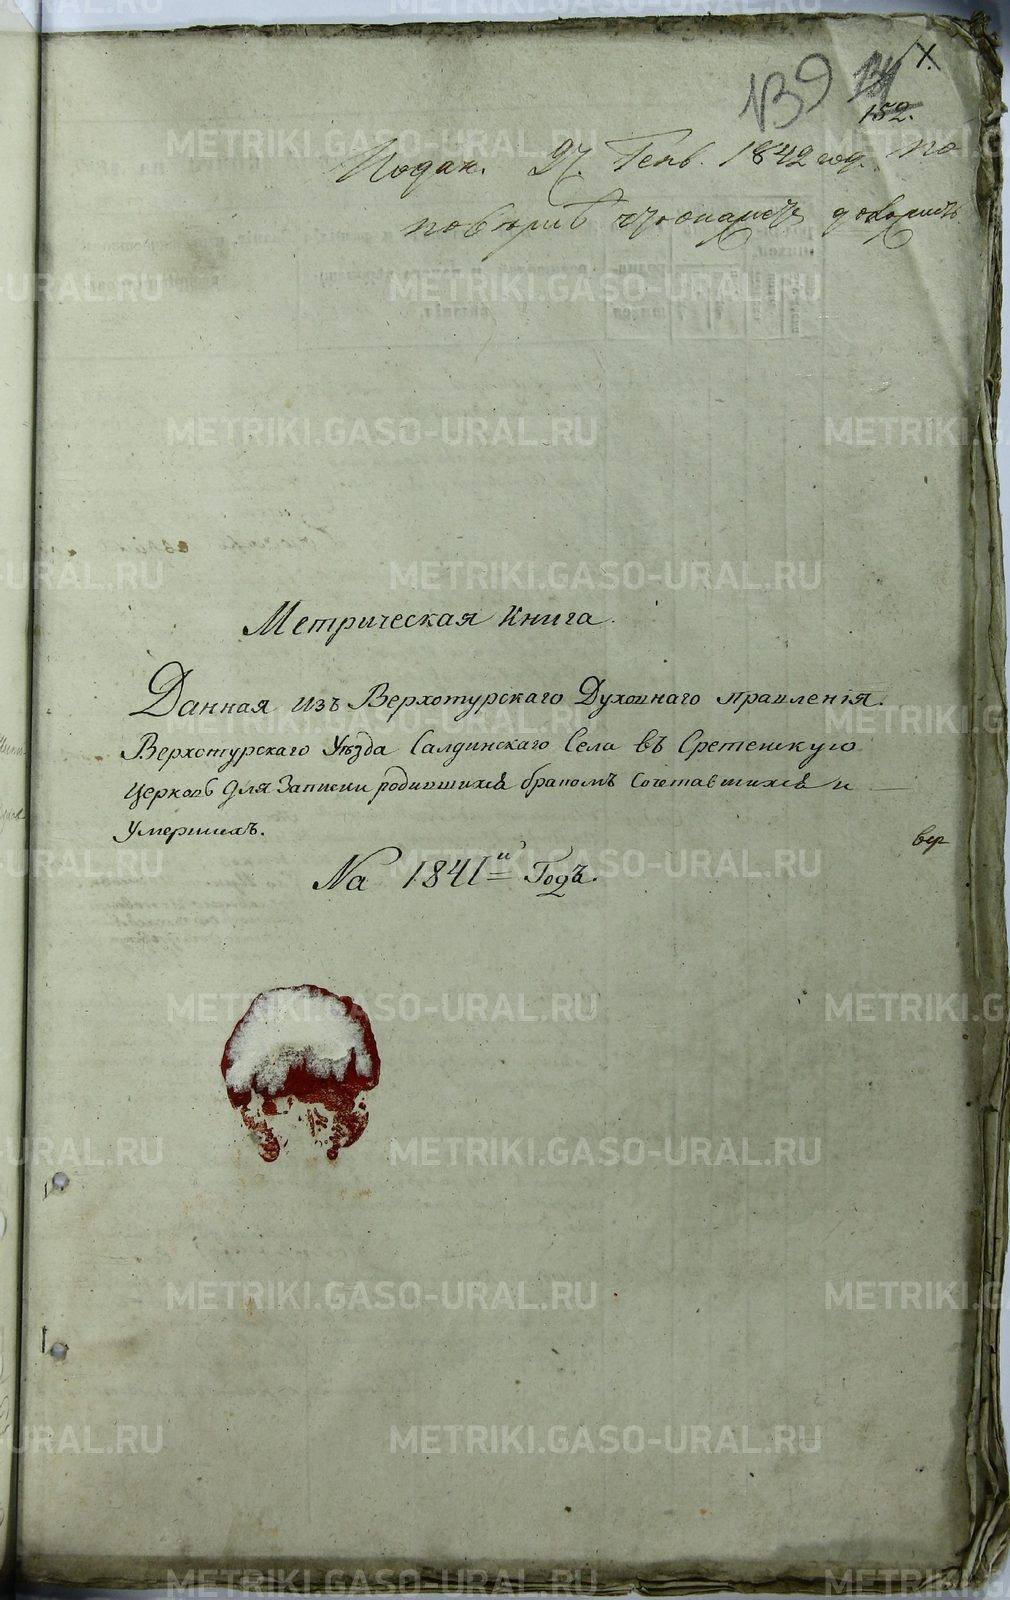 139
152.
Подан. 27. Генв. 1842 год. по
повѣркѣ
Метрическая Книга.
Данная изъ Верхотурскаго Духовнаго правленія.
Верхотурскаго Уѣзда Салдинскаго Села въ Сретенскую
церковь для Записки родившихся бракомъ Сочетавшихся и
Умершихъ.
вер
На 1841й Годъ.
METRIKI.GASO-URAL.RU